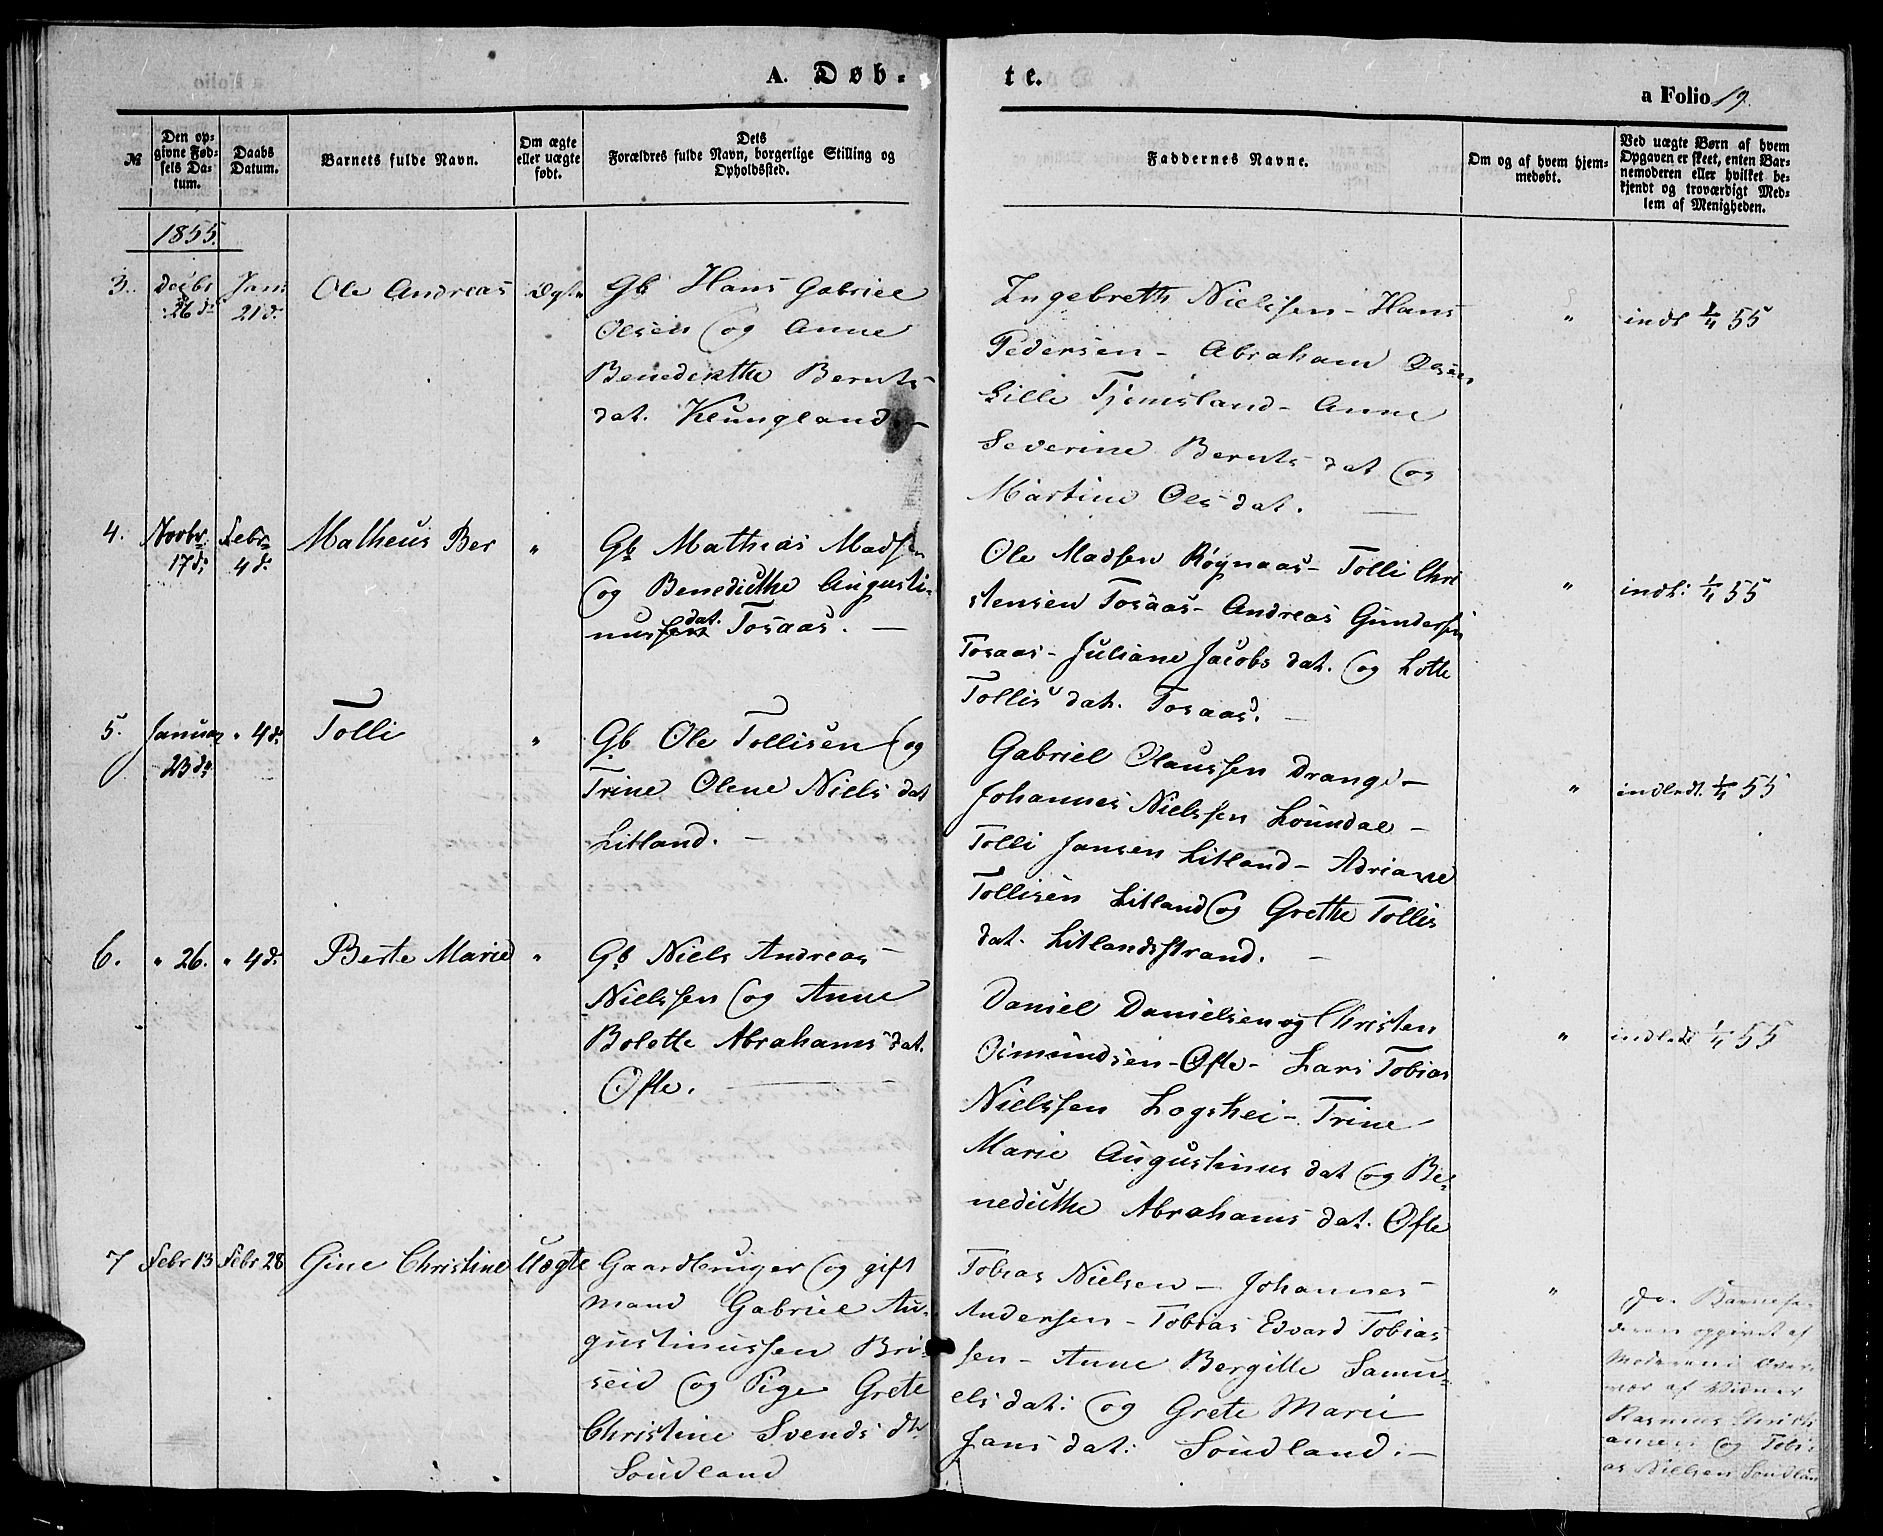 A. Døb-
te.
a Folio 19.
№
Den opgivne Fødsels Datum.
Daabs Datum.
Barnets fulde Navn.
Om ægte eller uægte født.
Dets Forældres fulde Navn, borgerlige Stilling og Opholdssted.
Faddernes Navne.
Om og af hvem hjemmedøbt.
Ved uægte Børn af hvem Opgaven er skeet, enten Barnemoderen eller hvilket bekjendt og troværdigt Medlem af Menigheden.
1855.
3. Decbr 26 d: Jan: 21 d: Ole Andreas Ægte
Gb Hans Gabriel
Olsen og Anne
Benedikthe Bernts
dat. Klungland. -
Ingebreth Nielssen - Hans
Pedersen - Abraham Olsen
Lille Tjomsland - Anne
Severine Bernts dat og
Martine Olsdat. -
" indl 1/4 55
4. Novbr 17 d: Febr 4 d: Matheus Ber "
Gb Mathias Madsen
og Benedicthe Augusti-
nussen dat. Tosaas. -
Ole Madsen Røynaas - Tolli Chri
stensen Tosaas - Andreas Gundersen
Tosaas - Juliane Jacobs dat. og Lotte
Tollis dat. Tosaas. -
" indl: 1/4 55
5. Januar 23 d: " 4 d: Tolli "
Gb Ole Tollisen og
Trine Olene Niels dat
Litland. -
Gabriel Olaussen Drange -
Johannes Nielssen Loundal -
Tolli Jansen Litland - Adriane
Tollisen Litland og Grethe Tollis
dat. Litlandsstrand. -
" indledt. 1/4 55
6. " 26. " 4 d: Berte Marie "
Gb Niels Andreas
Nielssen og Anne
Bolette Abrahams dat.
Øfte. -
Daniel Danielsen og Christen
Osmundsen - Øfte - Lars Tobias
Nielssen Logshei - Trine
Marie Augustinus dat og Be-
nedicthe Abrahams dat. Øfte
" indledt 1/4 55
7 Febr 13 Febr 28 Gine Christine Uægte
Gaardbruger og gift
mand Gabriel Au-
gustinussen Bri-
seid og Pige Grete
Christine Svends dtr
Soudland
Tobias Nielsen - Johannes
Andersen - Tobias Edvard Tobias
sen - Anne Bergitte Samu-
els dat: og Grete Marie
Jans dat: Soudland. -
"
Barnefa-
deren opgivet af
Moderen i Over-
vær af Vidner
Rasmus Christi
ansen og Tobi-
as Nielsen Soudland